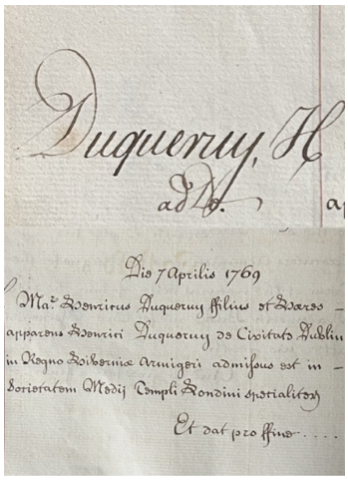 Duqueruy, H
ad
Die 7 Aprilis 1769
Mar. Henricus Duqueruy ffilius et Hæres
apparens Henrici Duqueruy de Civitate Dublin
in Regno Hiberniæ Armigeri admissus est in
Societatem Medij Templi Londini specialiter
Et dat pro ffine ....